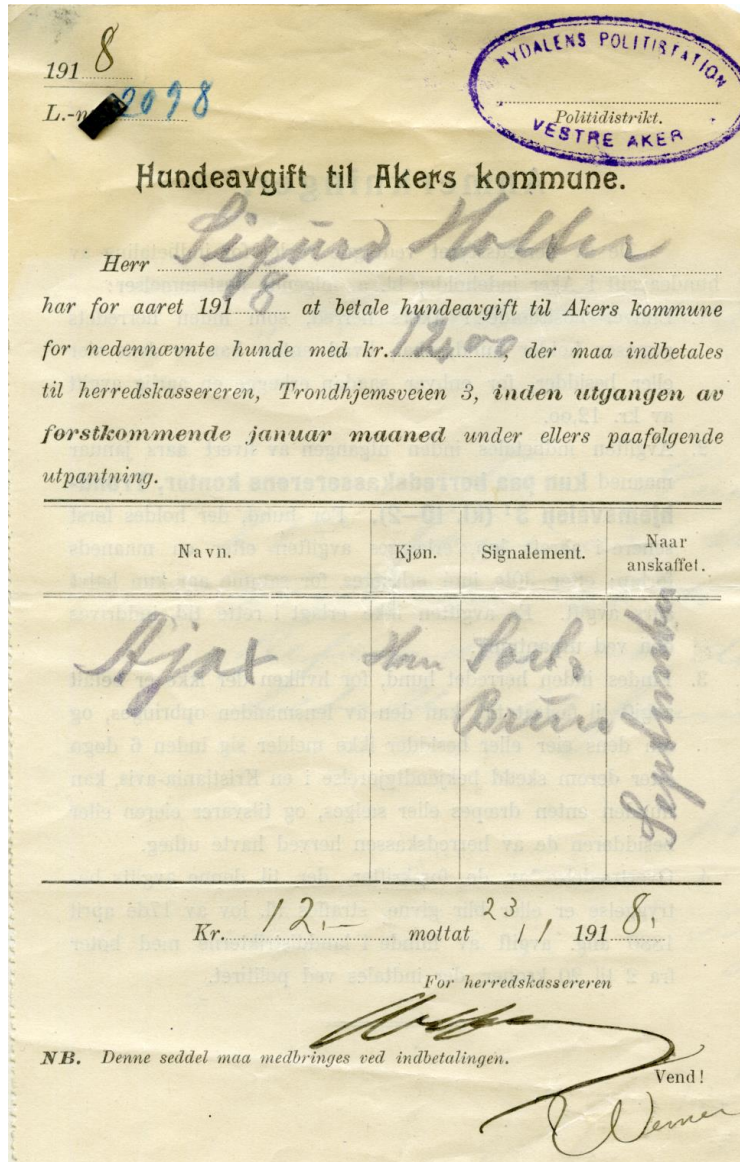 1918
L.-n 2098
NYDALENS POLITISTATION
Politidistrikt.
VESTRE AKER
Hundeavgift til Akers kommune.
Herr Sigurd Holter
har for aaret 1918 at betale hundeavgift til Akers kommune
for nedennævnte hunde med kr. 12,00, der maa indbetales
til herredskassereren, Trondhjemsveien 3, inden utgangen av
førstkommende januar maaned under ellers paafølgende
utpantning.
Navn. Kjøn. Signalement. Naar anskaffet.
Ajax Han Sort Brun September
Kr. 12.- mottat 23/1 1918.
For herredskassereren
NB. Denne seddel maa medbringes ved indbetalingen.
Vend!
Werner